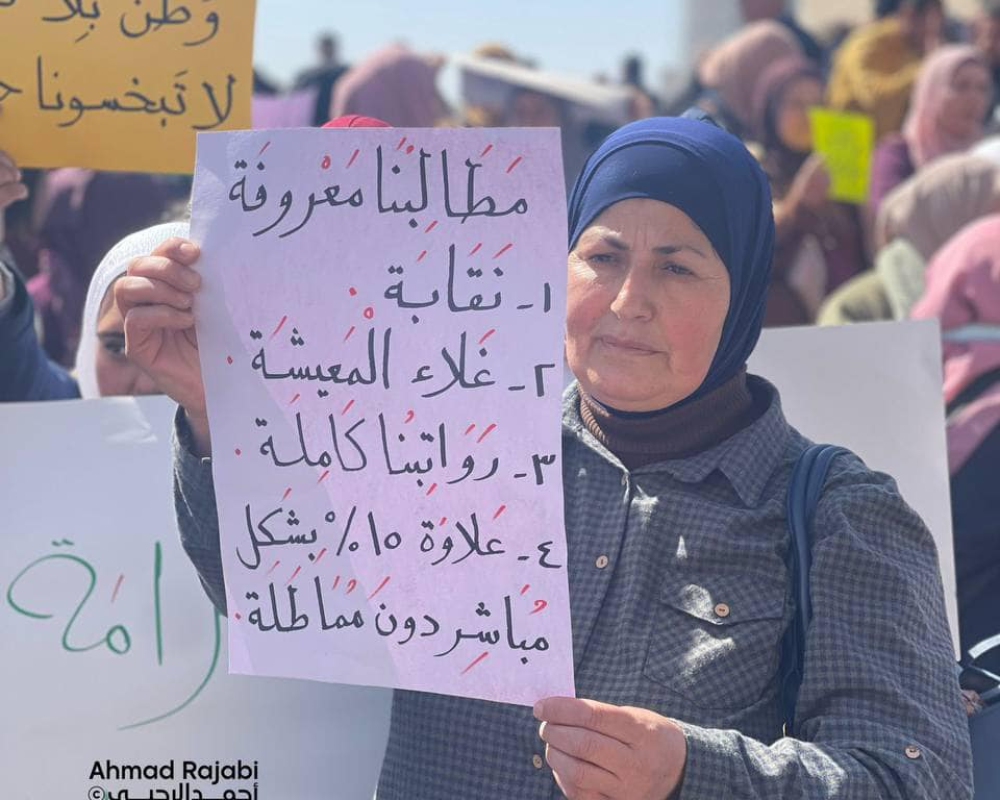 وَطن بِلا
لا تَبخسونا
مَطَالِبُنا مَعْروفَة
١- نَقَابَة .
٢- غَلاء الْمَعِيشَة .
٣- رَوَاتِبُنا كَامِلَة .
٤- عَلاوَة ١٥٪ بِشَكل
مُباشِر دونَ مُمَاطَلَة .
رامَة
Ahmad Rajabi
أحمد الرجبي ©